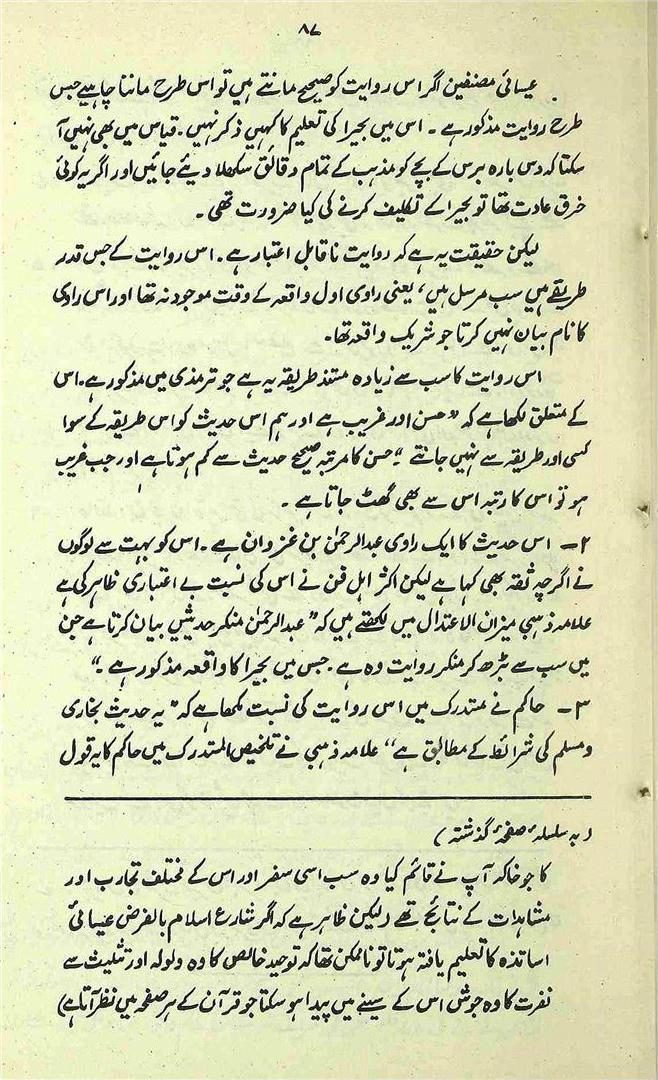 ۸۷
عیسائی مصنفین اگر اس روایت کو صحیح مانتے ہیں تو اس طرح ماننا چاہیے جس
طرح روایت مذکور ہے ۔ اس میں بحیرا کی تعلیم کا کہیں ذکر نہیں ۔ قیاس میں بھی نہیں آ
سکتا کہ دس بارہ برس کے بچے کو مذہب کے تمام دقائق سکھلا دیئے جائیں اور اگر یہ کوئی
خرق عادت تھا تو بحیرا کے تکلیف کرنے کی کیا ضرورت تھی ۔
لیکن حقیقت یہ ہے کہ روایت ناقابل اعتبار ہے ۔ اس روایت کے جس قدر
طریقے ہیں سب مرسل ہیں، یعنی راوی اول واقعہ کے وقت موجود نہ تھا اور اس راوی
کا نام بیان نہیں کرتا جو شریک واقعہ تھا۔
اس روایت کا سب سے زیادہ مستند طریقہ یہ ہے جو ترمذی میں مذکور ہے۔ اس
کے متعلق لکھا ہے کہ "حسن اور غریب ہے اور ہم اس حدیث کو اس طریقہ کے سوا
کسی اور طریقہ سے نہیں جانتے" حسن کا مرتبہ صحیح حدیث سے کم ہوتا ہے اور جب غریب
ہو تو اس کا رتبہ اس سے بھی گھٹ جاتا ہے ۔
۲ــ اس حدیث کا ایک راوی عبدالرحمٰن بن غزوان ہے ۔ اس کو بہت سے لوگوں
نے اگرچہ ثقہ بھی کہا ہے لیکن اکثر اہل فن نے اس کی نسبت بے اعتباری ظاہر کی ہے
علامہ ذہبی میزان الاعتدال میں لکھتے ہیں کہ "عبدالرحمٰن منکر حدیثیں بیان کرتا ہے جن
میں سب سے بڑھ کر منکر روایت وہ ہے ۔ جس میں بحیرا کا واقعہ مذکور ہے ۔"
۳ــ حاکم نے مستدرک میں اس روایت کی نسبت لکھا ہے کہ "یہ حدیث بخاری
و مسلم کی شرائط کے مطابق ہے" علامہ ذہبی نے تلخیص المستدرک میں حاکم کا یہ قول
(بہ سلسلہ صفحہ گذشتہ)
کا جو خاکہ آپ نے قائم کیا وہ سب اسی سفر اور اس کے مختلف تجارب اور
مشاہدات کے نتائج تھے (لیکن ظاہر ہے کہ اگر شارع اسلام بالفرض عیسائی
اساتذہ کا تعلیم یافتہ ہوتا تو ناممکن تھا کہ توحید خالص کا وہ ولولہ اور تثلیث سے
نفرت کا وہ جوش اس کے سینے میں پیدا ہو سکتا جو قرآن کے ہر صفحہ میں نظر آتا ہے)